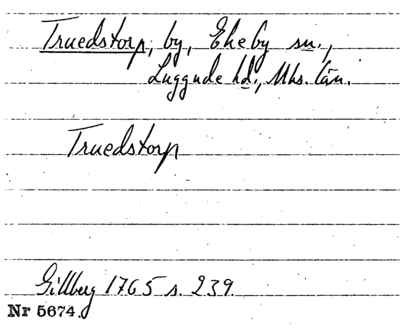 Truedstorp, by, Ekeby sn.,
Luggude hd., Mhs. län.
Truedstorp
Gillberg 1765 s. 239.
Nr 5674.